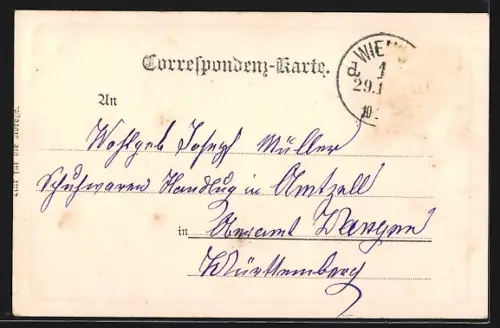 Correspondenz-Karte.
WIEN
1
29.1
10
An
Wohlgeb Josef Müller
Schuhwaren Handlug in Amtzell
in Oberamt Wangen
Württemberg
Nur für die Adresse.